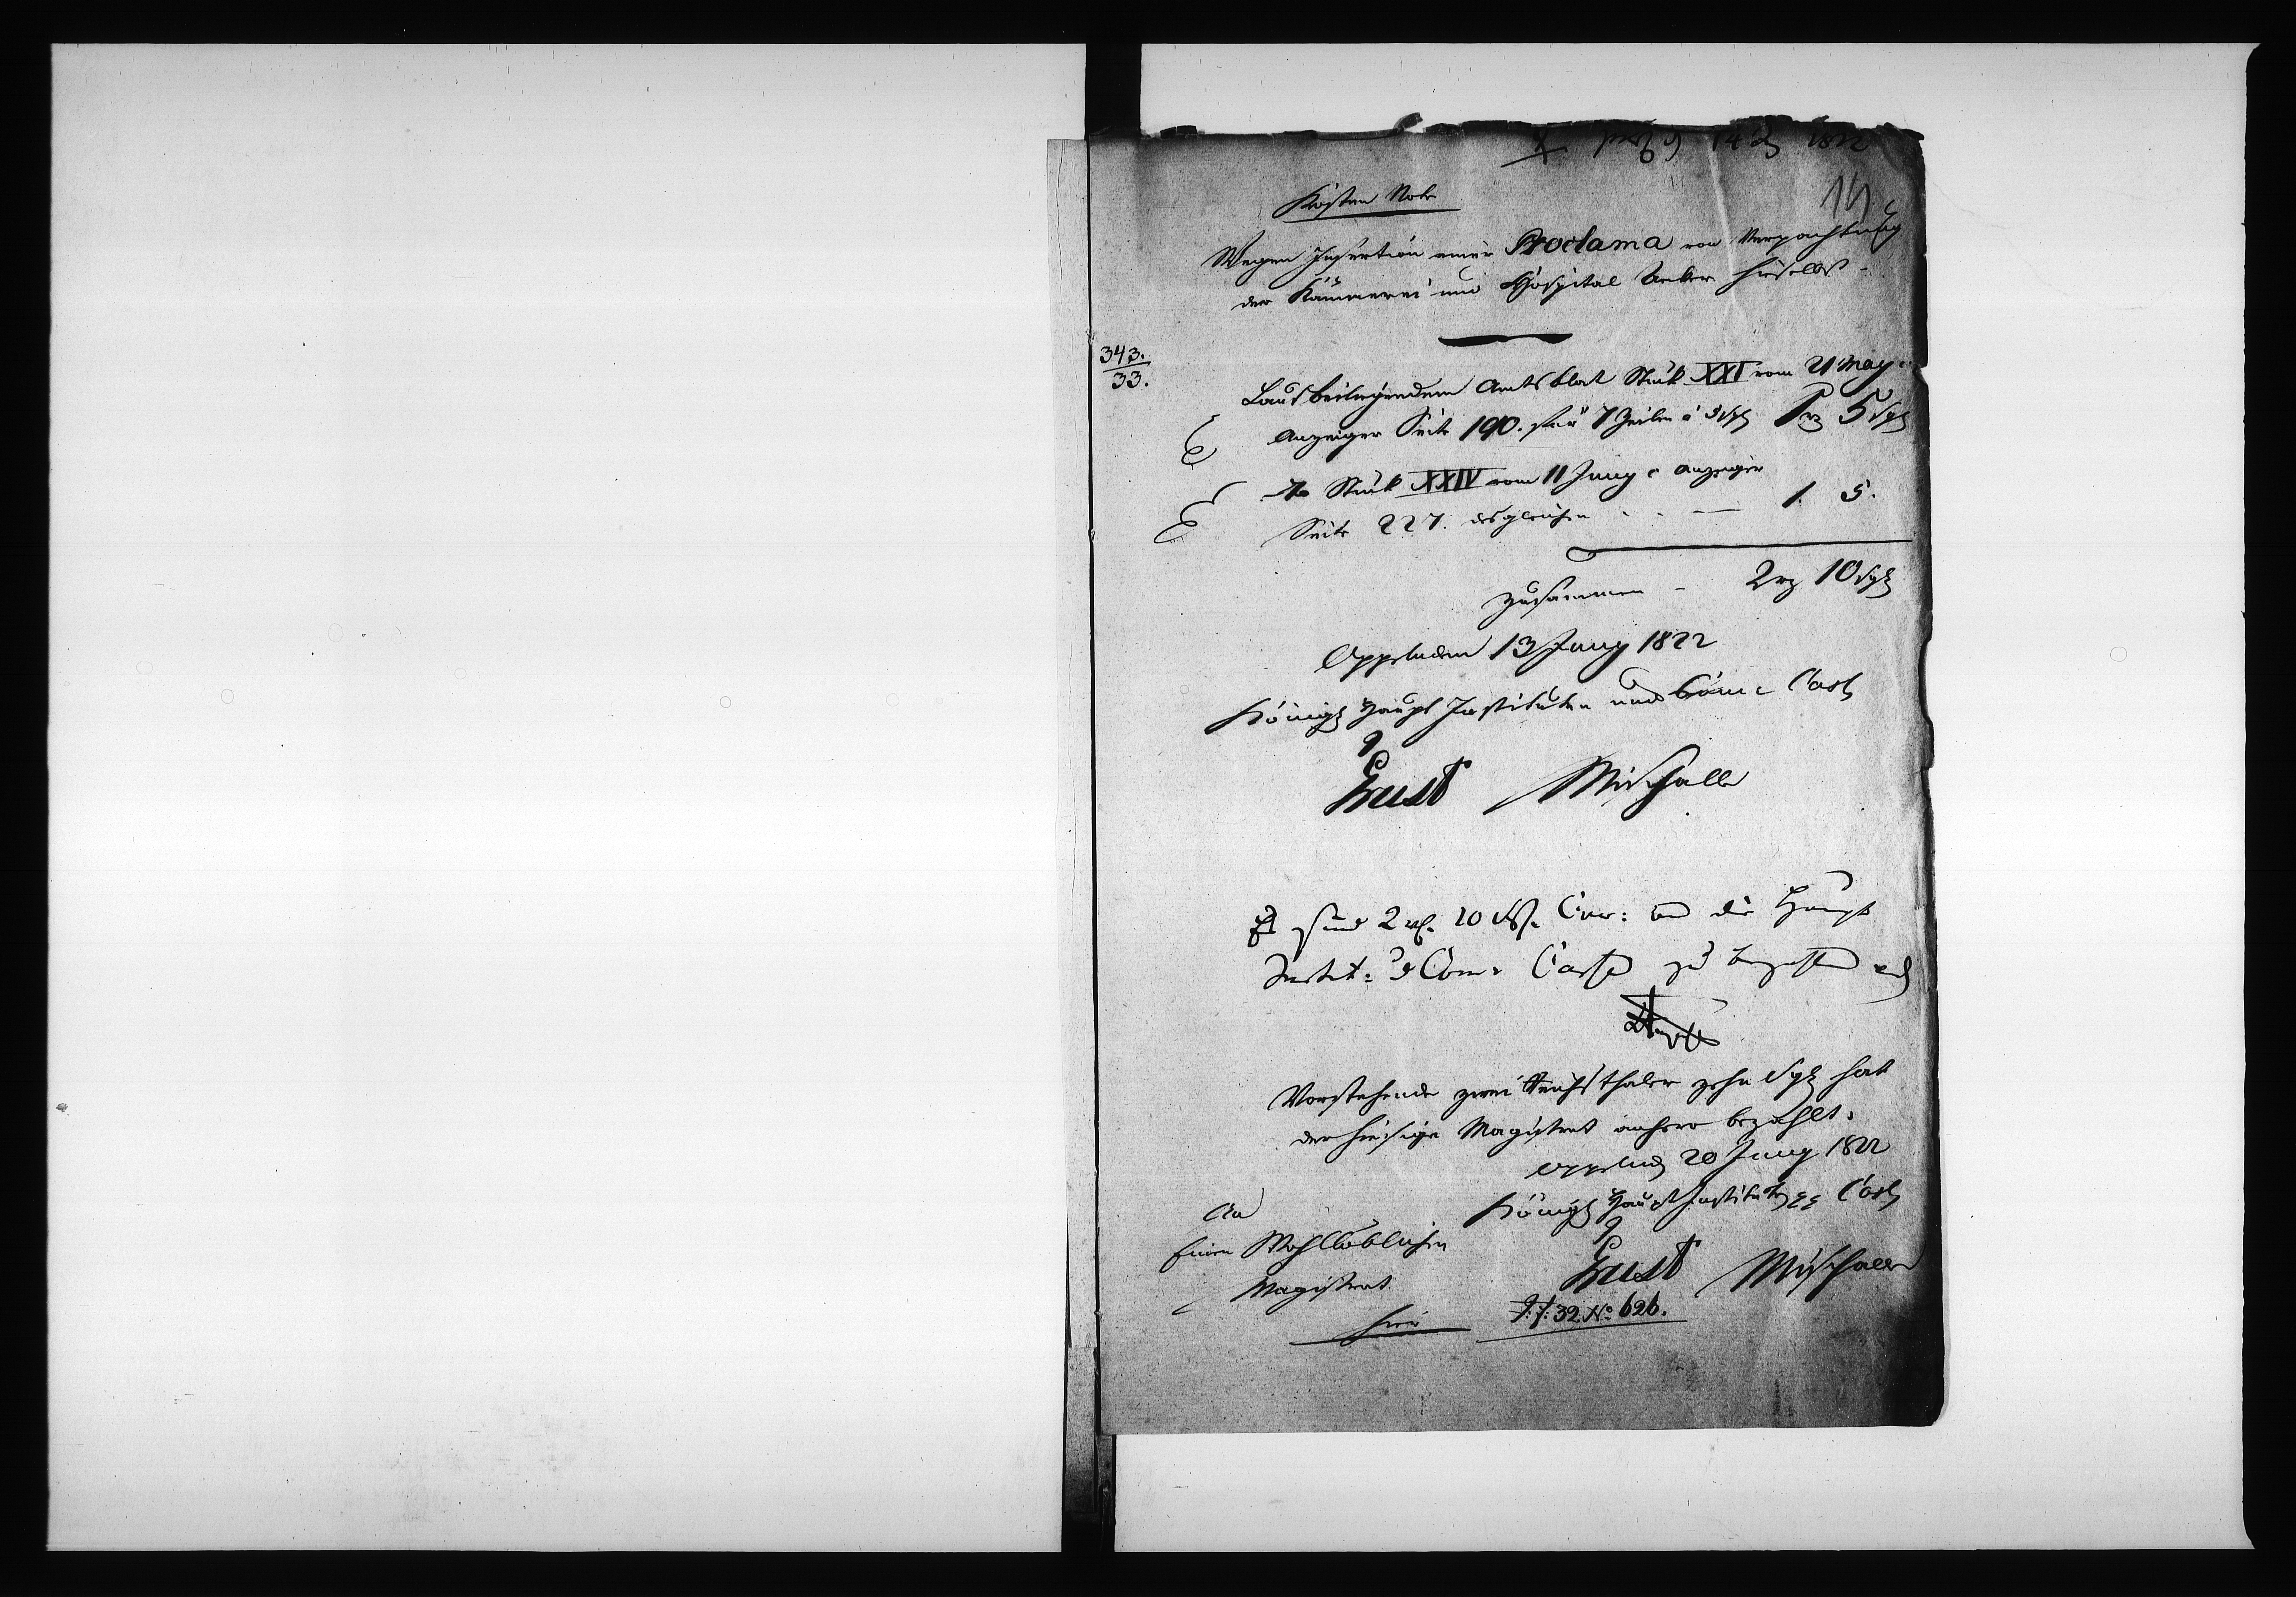 14 1822
14
Kosten Note
Wegen Insertion einer Proclama von Verpachtung
der Kämmerei und Hospital Aecker hieselbst -
343.
33.
Laut beiliegendem Amtsblat Stück XXI vom 21 May c
Anzeiger Seite 190. für 7 Zeilen á 5 sgl 1 rtl 5 sgl
do Stück XXIV vom 11 Juny c Anzeiger
Seite 227. desgleichen . . — 1. 5.
zusammen - 2 rtl 10 sgl
Oppeln den 13 Juny 1822
Königl Haupt Instituten und Com: Cass
Ernst
Es sind 2 rtl. 10 sgl. Cour: an die Haupt
Instit: & Com: Casse zu bezahlen
Vorstehende zwei Reichsthaler zehn Sgl hat
der hiesige Magistrat anhero bezahlt.
Oppeln d 20 Juny 1822
Königl Haupt Instituten Cass
An
Einen Wohllöblichen
Magistrat
hier
Ernst
J. f. 32 No 626.